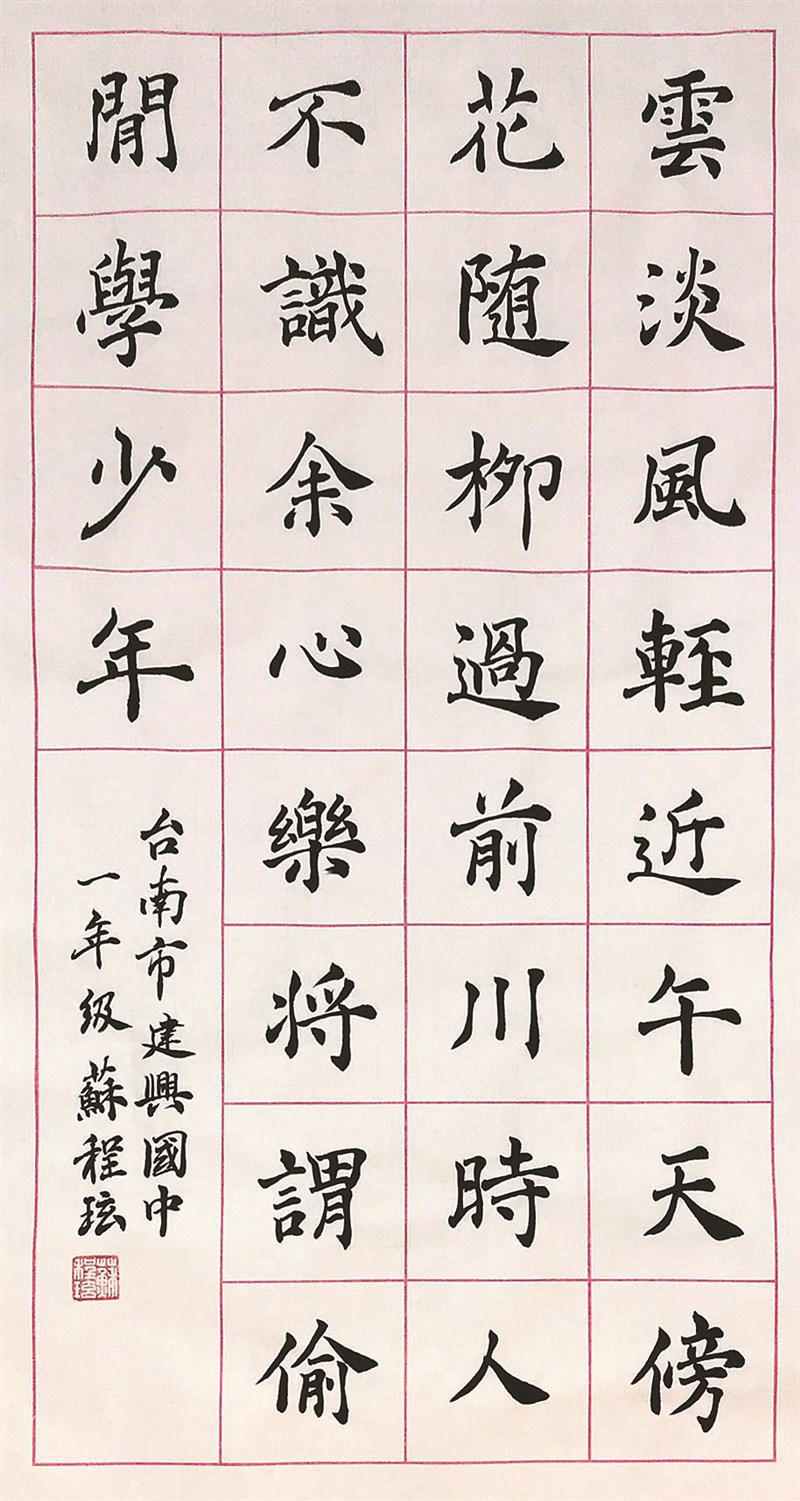 雲淡風輕近午天傍
花随柳過前川時人
不識余心樂將謂偷
閒學少年
台南市建興國中
一年級蘇程玹
蘇程玹